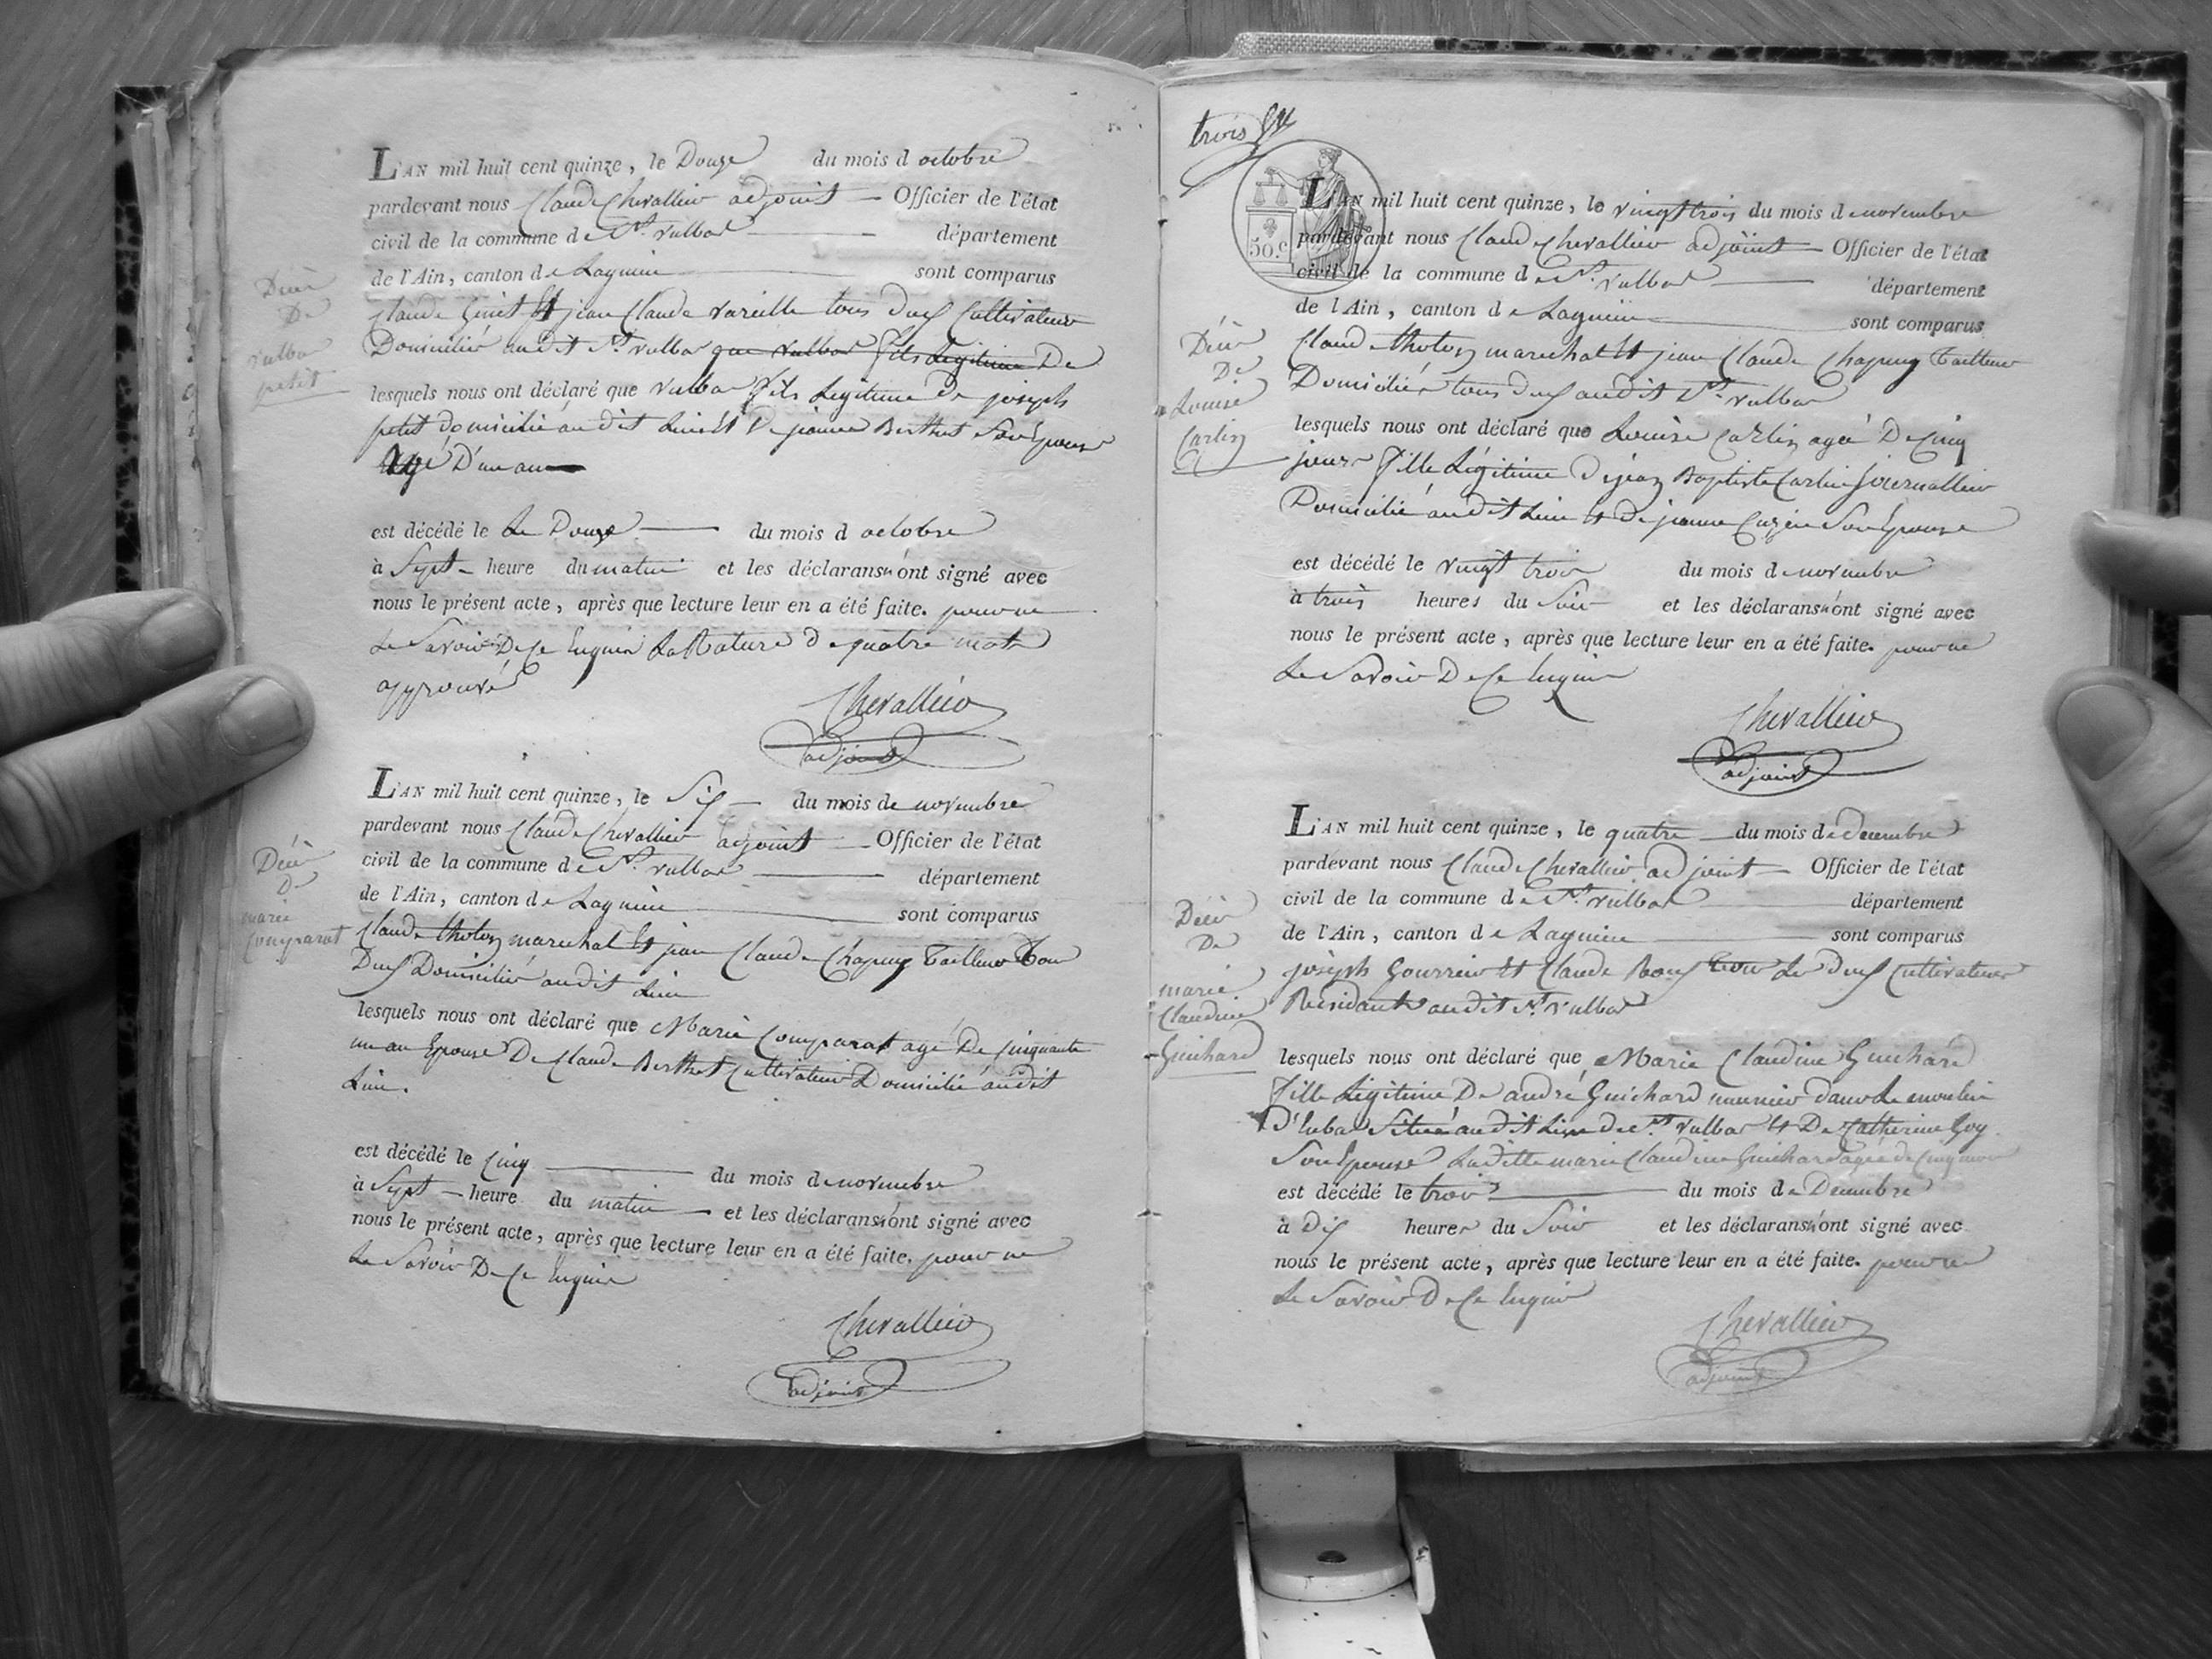 Décès
De
vulbas
petit
L'AN mil huit cent quinze, le Douze du mois d octobre
pardevant nous Claude Chevallier adjoint Officier de l'état
civil de la commune de St. vulbas département
de l'Ain, canton de Lagnieu sont comparus
Claude Genet Et jean Claude vareille tous deux Cultivateurs
Domiciliés audit St. vulbas que vulbas fils Legitime De
lesquels nous ont déclaré que vulbas fils Legitime De joseph
petit domicilié audit Lieu Et De jeanne Berthet Son Epouse
agé D'un an
est décédé le Le Douze du mois d octobre
à Sept heure du matin et les déclarans n'ont signé avec
nous le présent acte, après que lecture leur en a été faite. pour ne
Le Savoir De Ce Enquis La Rature de quatre mots
approuvé
Chevallier
adjoint
Décès
De
marie
Comparat
L'AN mil huit cent quinze, le Six du mois de novembre
pardevant nous Claude Chevallier adjoint Officier de l'état
civil de la commune de St. vulbas département
de l'Ain, canton de Lagnieu sont comparus
Claude tholon marechal Et jean Claude Chapuy Tailleur Tous
Deux Domiciliés audit Lieu
lesquels nous ont déclaré que Marie Comparat agé De Cinquante
un an Epouse De Claude Berthet Cultivateur Domicilié audit
Lieu.
est décédé le Cinq du mois de novembre
à Sept heure du matin et les déclarans n'ont signé avec
nous le présent acte, après que lecture leur en a été faite. pour ne
Le Savoir De Ce Enquis
Chevallier
adjoint
trois
50.c
Décès
De
Louise
Carlin
L'AN mil huit cent quinze, le vingt trois du mois de novembre
pardevant nous Claude Chevallier adjoint Officier de l'état
civil de la commune de St. vulbas département
de l'Ain, canton de Lagnieu sont comparus
Claude tholon marechal Et jean Claude Chapuy Tailleur
Domiciliés tous deux audit St. vulbas
lesquels nous ont déclaré que Louise Carlin agée De Cinq
jours fille Légitime De jean Baptiste Carlin journallier
Domicilié audit Lieu Et De jeanne Son Epouse
est décédé le vingt trois du mois de novembre
à trois heures du Soir et les déclarans n'ont signé avec
nous le présent acte, après que lecture leur en a été faite. pour ne
Le Savoir De Ce Enquis
Chevallier
adjoint
Décès
De
marie
Claudine
Guichard
L'AN mil huit cent quinze, le quatre du mois de decembre
pardevant nous Claude Chevallier adjoint Officier de l'état
civil de la commune de St. vulbas département
de l'Ain, canton de Lagnieu sont comparus
joseph Gourrier Et Claude Roux tous Les deux Cultivateurs
Residants audit St. vulbas
lesquels nous ont déclaré que Marie Claudine Guichard
fille Légitime De andré Guichard meunier dans Le moulin
Situé audit Lieu de St. vulbas Et De Catherine Goy
Son Epouse Laditte marie Claudine Guichard agée de Cinq mois
est décédé le trois du mois de Decembre
à Dix heures du Soir et les déclarans n'ont signé avec
nous le présent acte, après que lecture leur en a été faite. pour ne
Le Savoir De Ce Enquis
Chevallier
adjoint